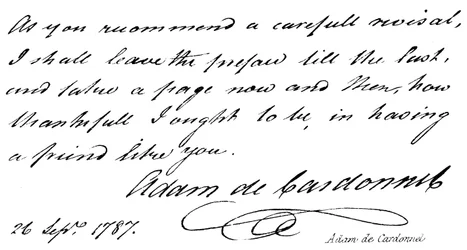 As you recommend a carefull revisal,
I shall leave the preface till the last,
and take a page now and then, how
thankfull I ought to be, in having
a friend like you.
Adam de Cardonnel
26 Sepr. 1787.
Adam de Cardonnel